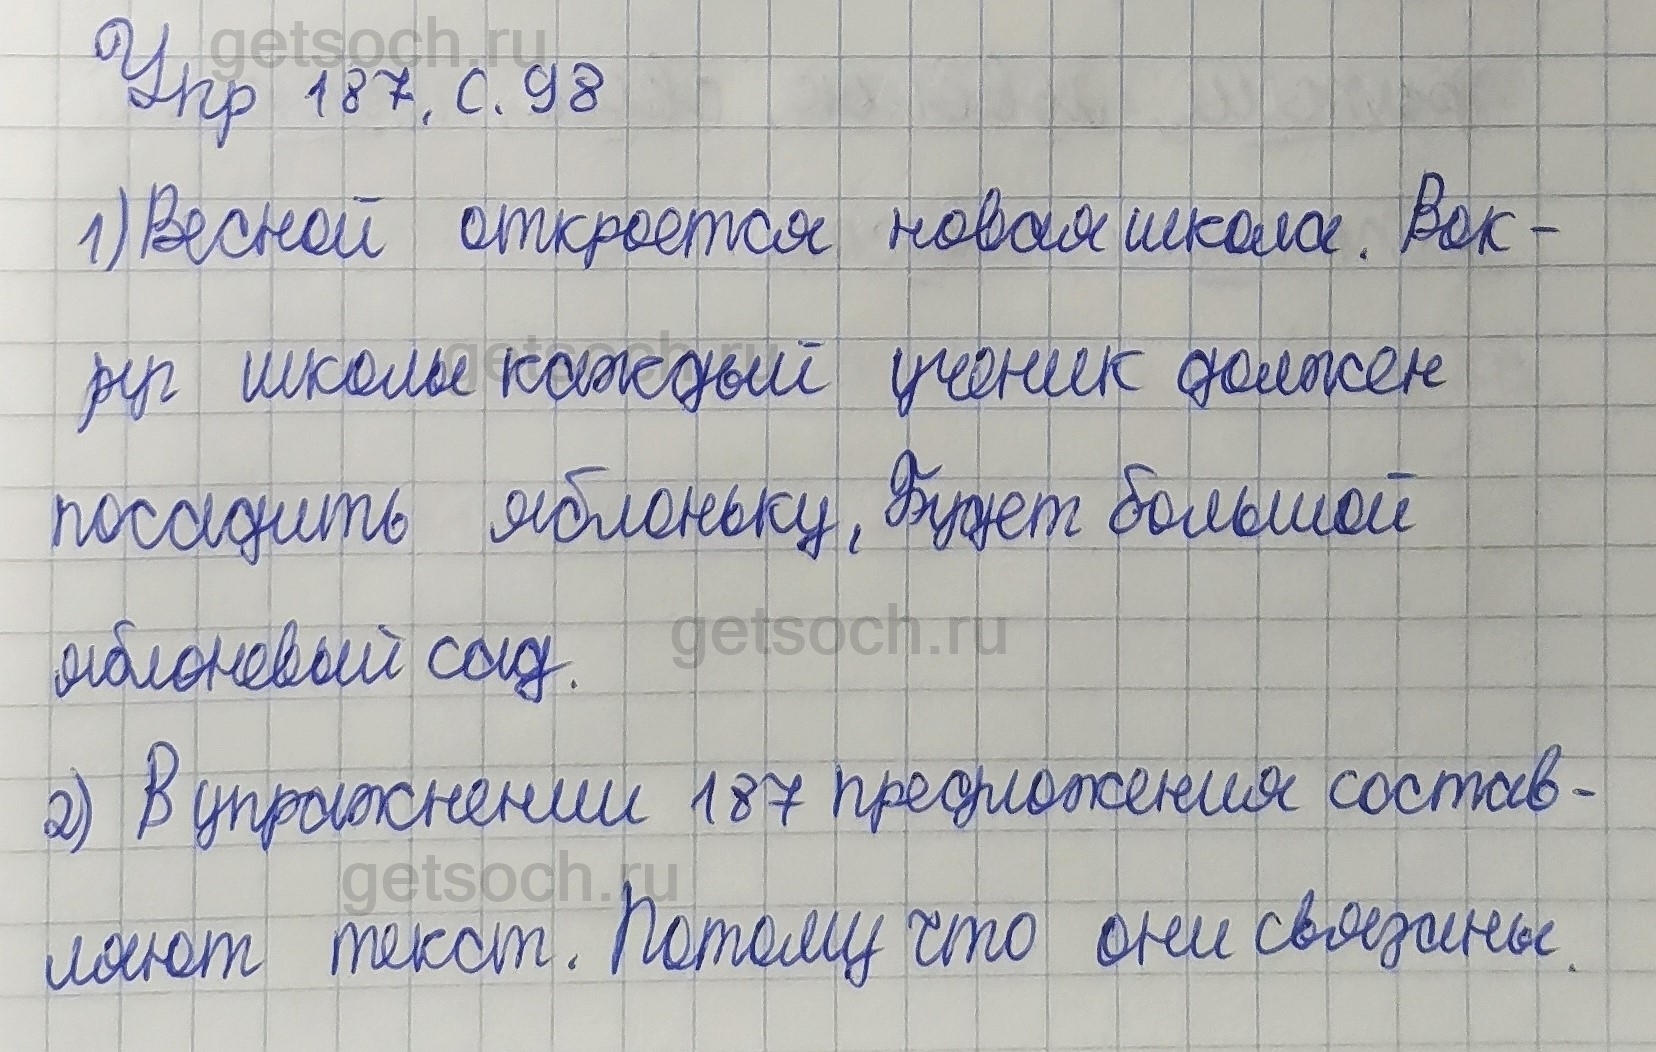 getsoch.ru
Упр 187, с. 98
1) Весной откроется новая школа. Вок-
getsoch.ru
руг школы каждый ученик должен
посадить яблоньку, Будет большой
getsoch.ru
яблоневый сад.
2) В упражнении 187 предложения состав-
getsoch.ru
ляют текст. Потому что они связаны.